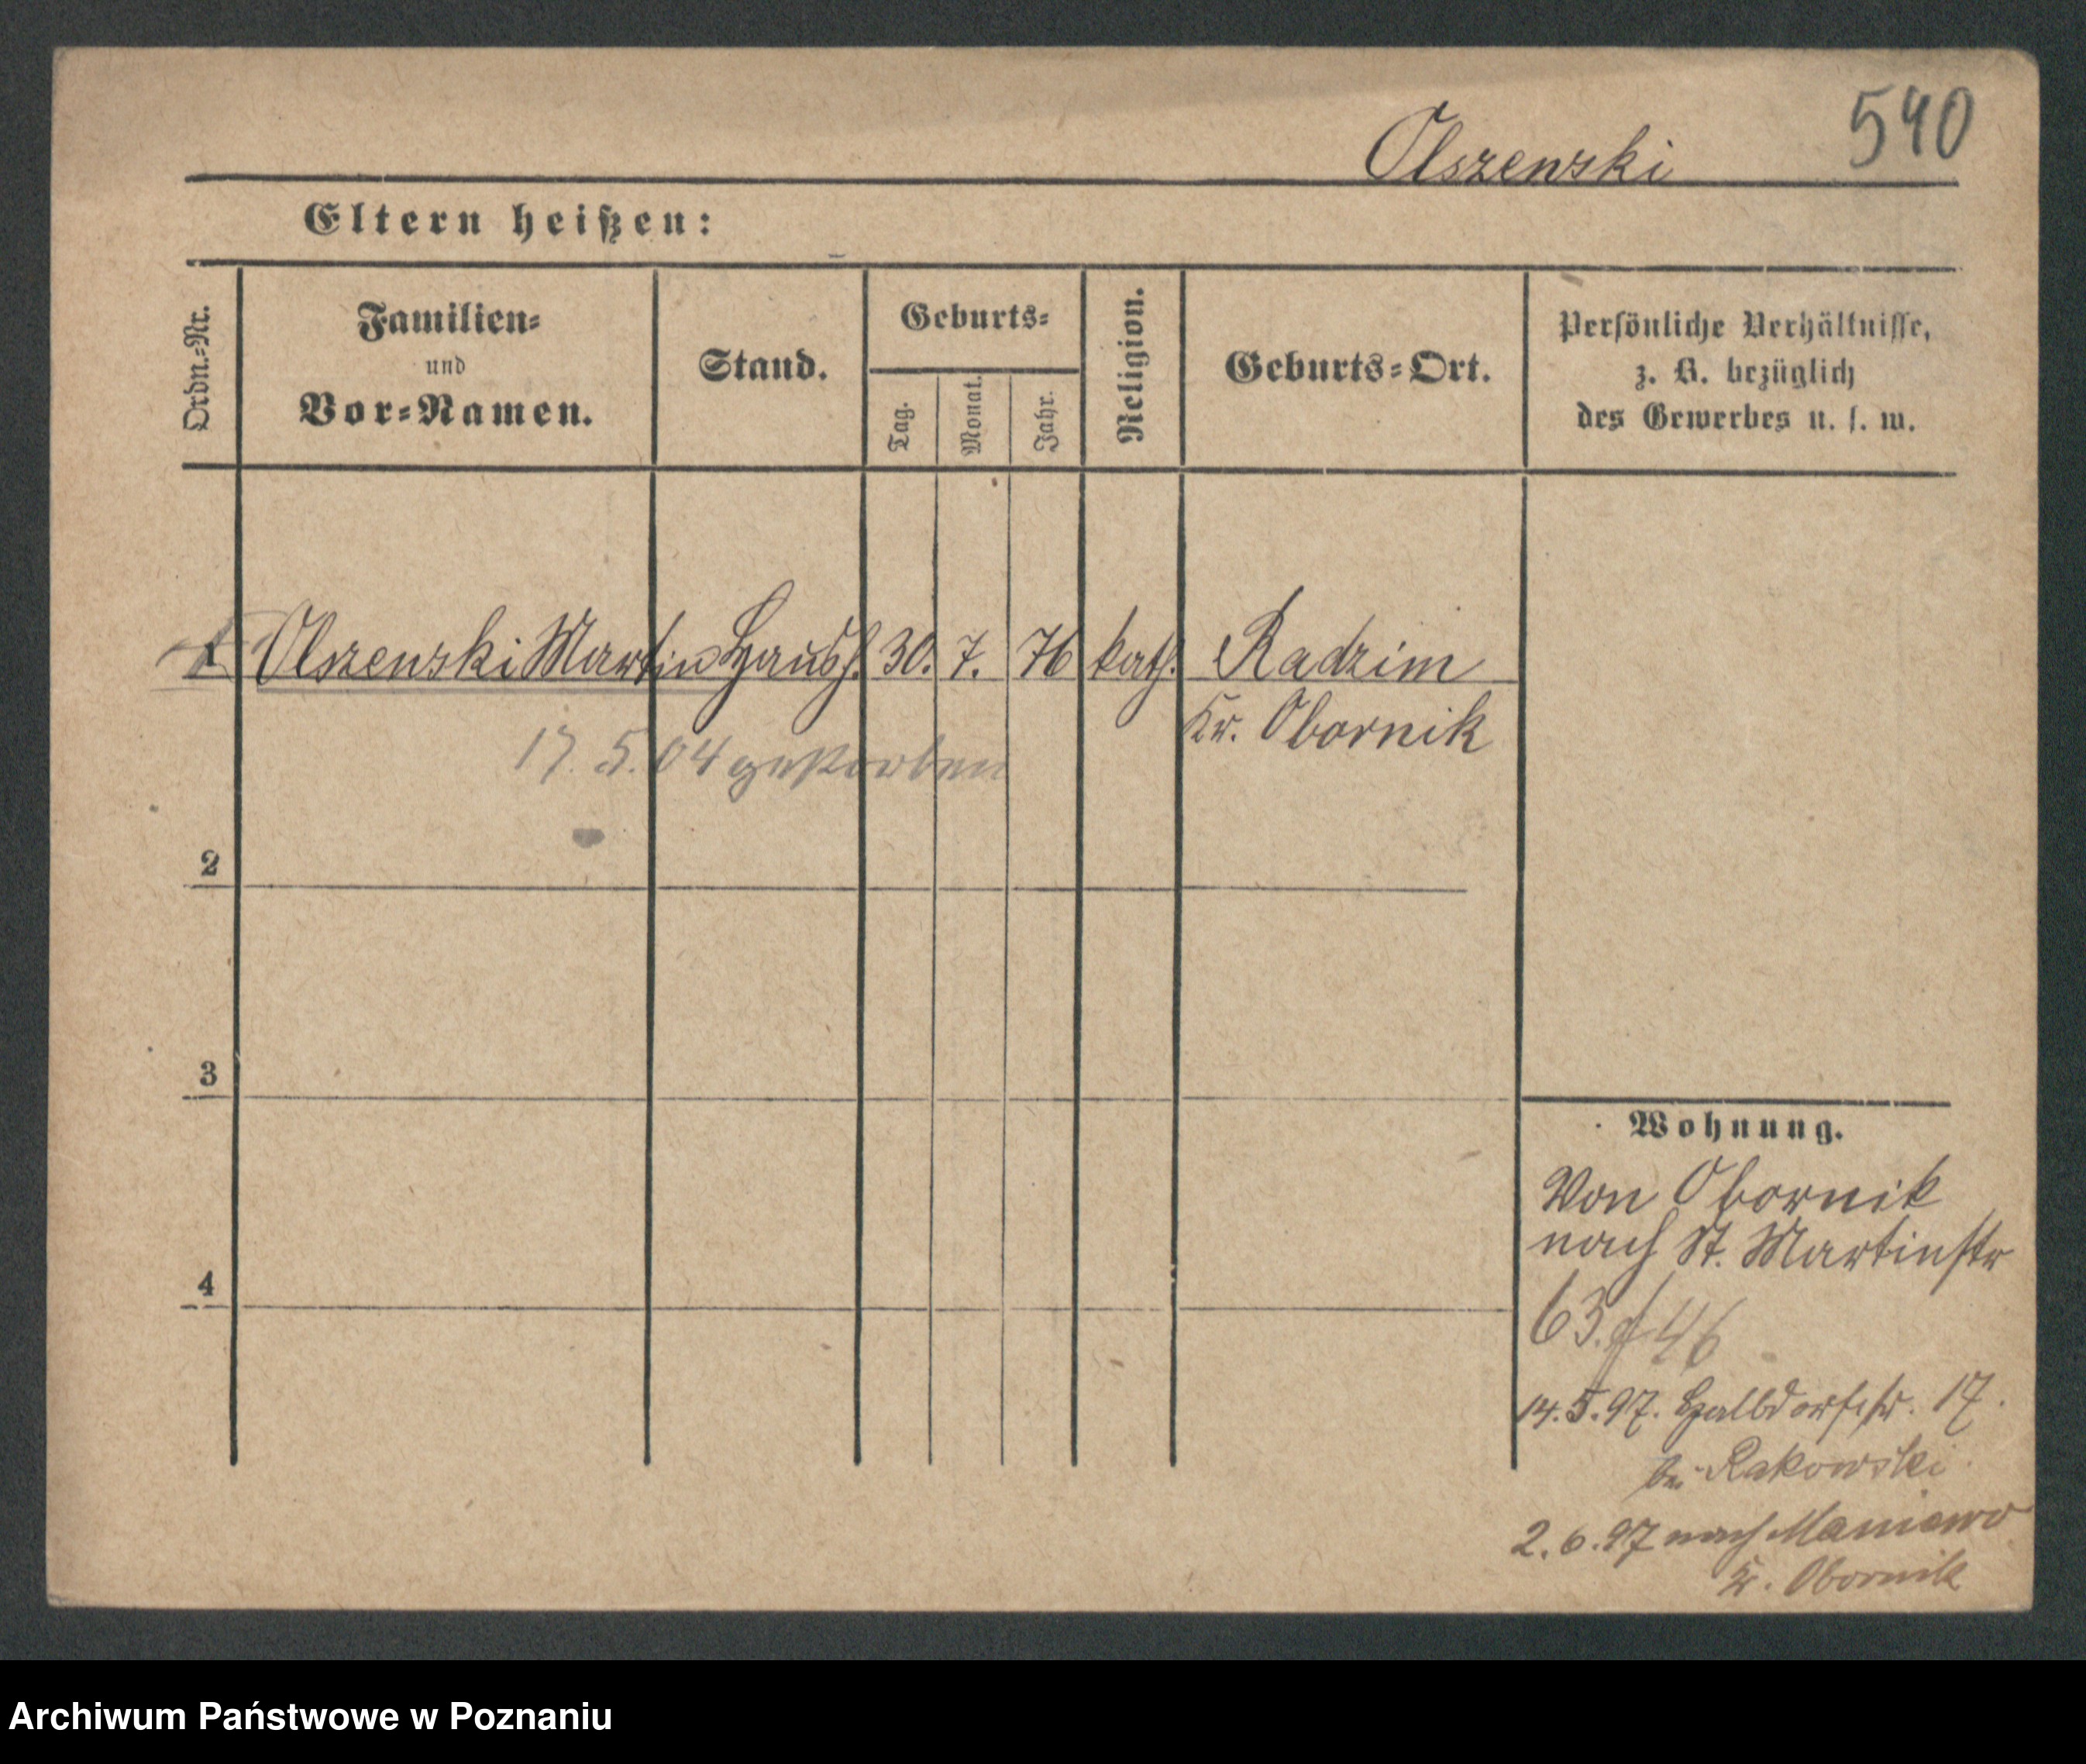 540
Olszewski
Eltern heißen:
Ordn.-Nr.
Familien-
und
Vor-Namen.
Stand.
Geburts-
Tag.
Monat.
Jahr.
Religion.
Geburts-Ort.
Persönliche Verhältnisse,
z. B. bezüglich
des Gewerbes u. s. w.
1 Olszewski Martin Haush. 30. 7. 76 kath. Radzim
Kr. Obornik
17. 5. 04 gestorben
2
3
4
Wohnung.
Von Obornik
nach St. Martinstr
63. 46
14. 5. 97. Halbdorfstr. 17.
bei Rakowski
2. 6. 97 nach Maniewo
Kr. Obornik
Archiwum Państwowe w Poznaniu